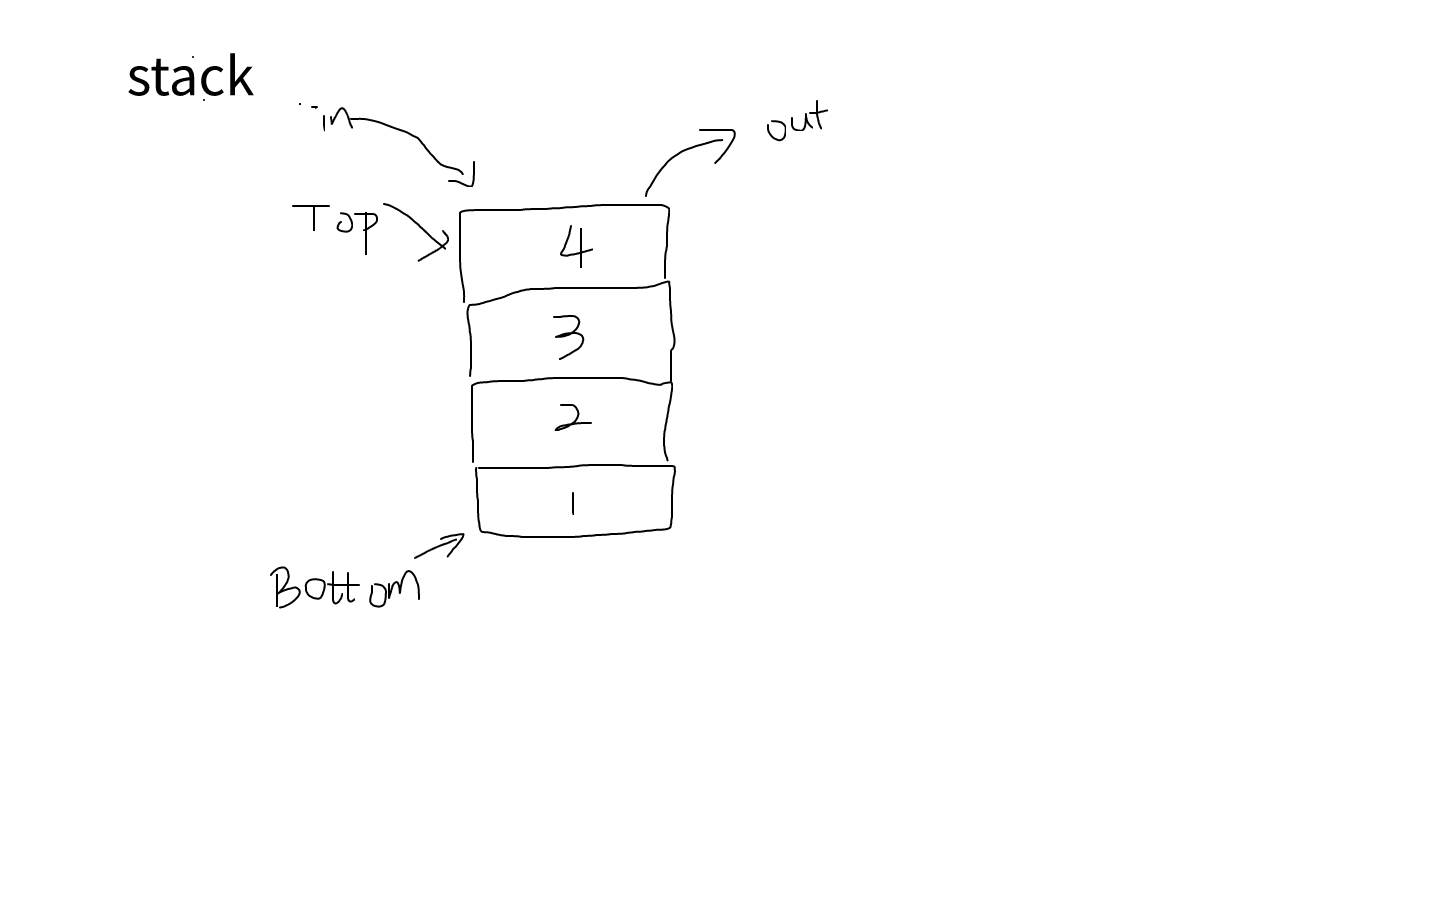 stack
in
out
Top
4
3
2
1
Bottom